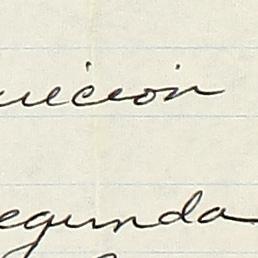 uición
egunda